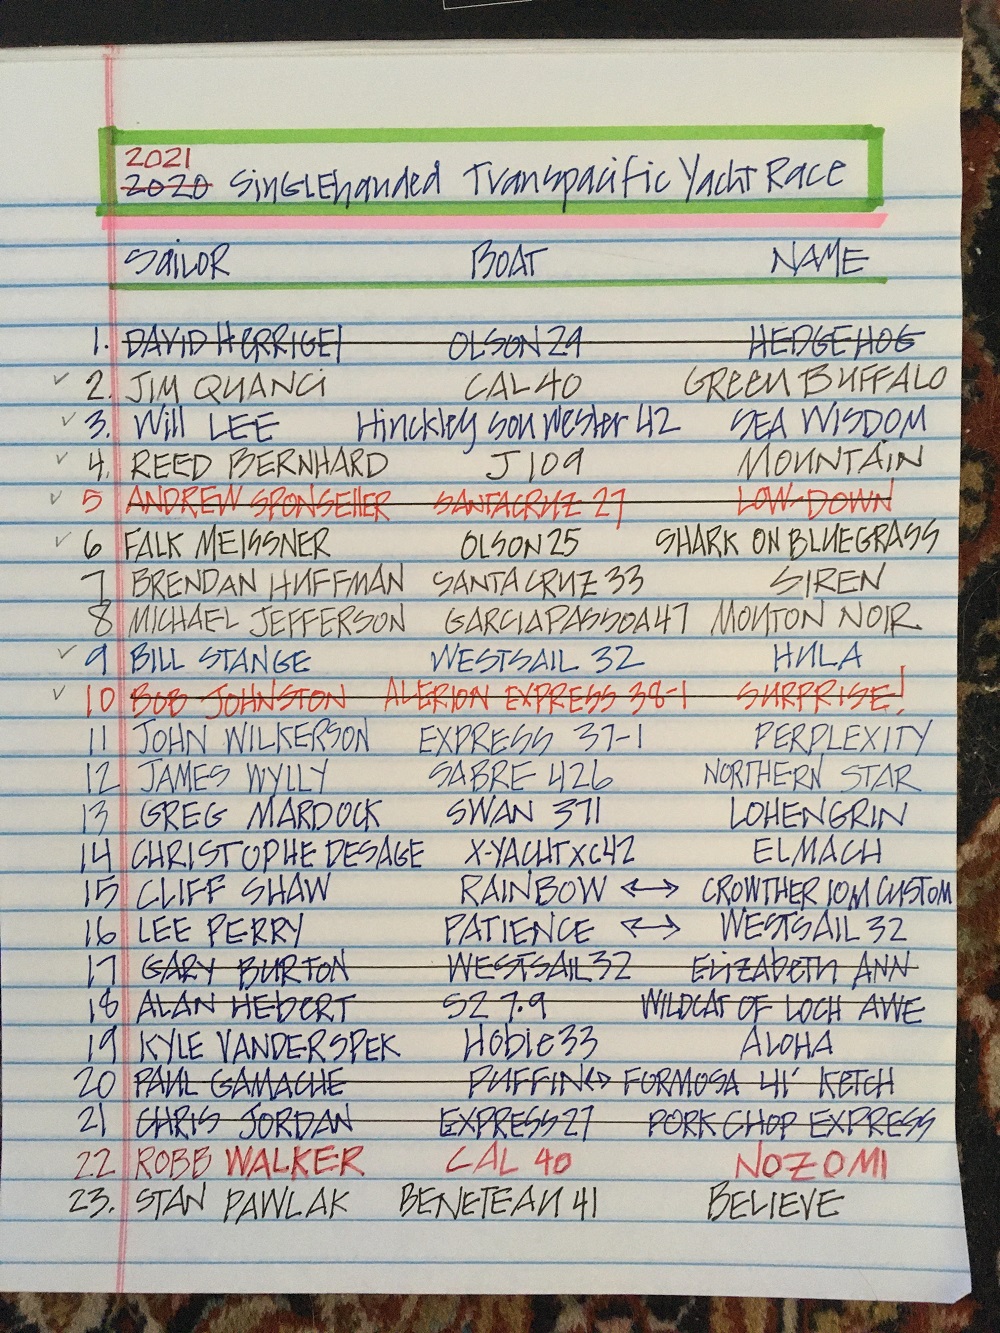 2021
2020 Singlehanded Transpacific Yacht Race
Sailor BOAT NAME
1. DAVID HERRIGEl OLSON 29 HEDGEHOG
✓ 2. JIM QUANCi CAL 40 GREEN BUFFALO
✓ 3. Will LEE Hinckley Sou Wester 42 SEA WISDOM
✓ 4. REED BERNHARD J 109 MOUNTAIN
✓ 5 ANDREW SPONSEllER SANTACRUZ 27 LOW-DOWN
✓ 6 FALK MEISSNER OLSON 25 SHARK ON BLUEGRASS
7 BRENDAN HUFFMAN SANTA CRUZ 33 SIREN
8 MICHAEL JEFFERSON GARCIA PASSOA 47 MOUTON NOIR
✓ 9 BILL STANGE WESTSAIL 32 HULA
✓ 10 BOB JOHNSTON ALERION EXPRESS 38-1 SURPRISE!
11 JOHN WILKERSON EXPRESS 37-1 PERPLEXITY
12 JAMES WYLLY SABRE 426 NORTHERN STAR
13 GREG MARDOCK SWAN 371 LOHENGRIN
14 CHRISTOPHE DESAGE X-YACHT XC42 ELMACH
15 CLIFF SHAW RAINBOW ↔ CROWTHER 10M CUSTOM
16 LEE PERRY PATIENCE ↔ WESTSAIL 32
17 GARY BURTON WESTSAIL 32 Elizabeth ANN
18 ALAN HEBERT S2 7.9 WILDCAT OF LOCH AWE
19 KYLE VANDERSPEK Hobie 33 ALOHA
20 PAUL GAMACHE PUFFIN ↔ FORMOSA 41' KETCH
21 CHRIS JORDAN EXPRESS 27 PORK CHOP EXPRESS
22 ROBB WALKER CAL 40 NOZOMI
23. STAN PAWLAK BENETEAU 41 BELIEVE